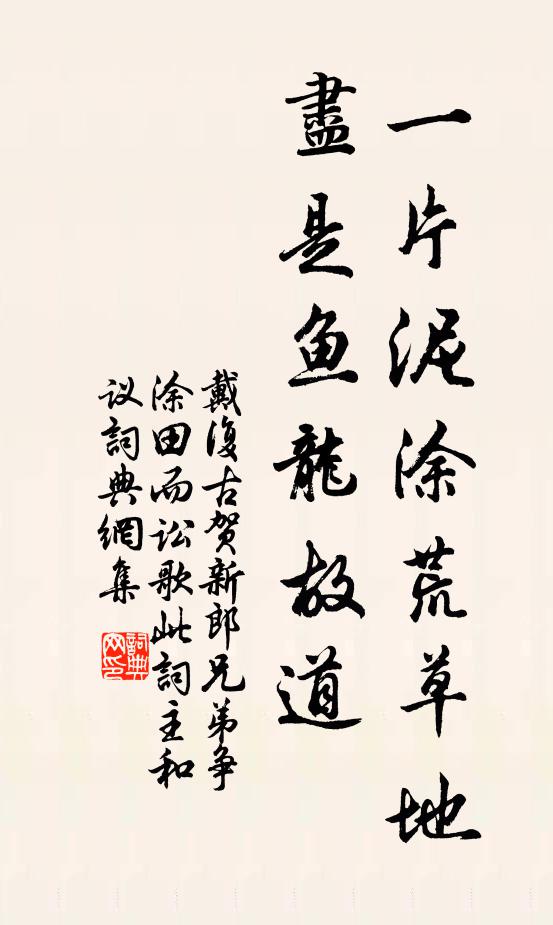 一片泥涂荒草地
盡是鱼龍故道
戴復古贺新郎兄弟争
涂田而讼歌此詞主和
议詞典網集
詞典网印